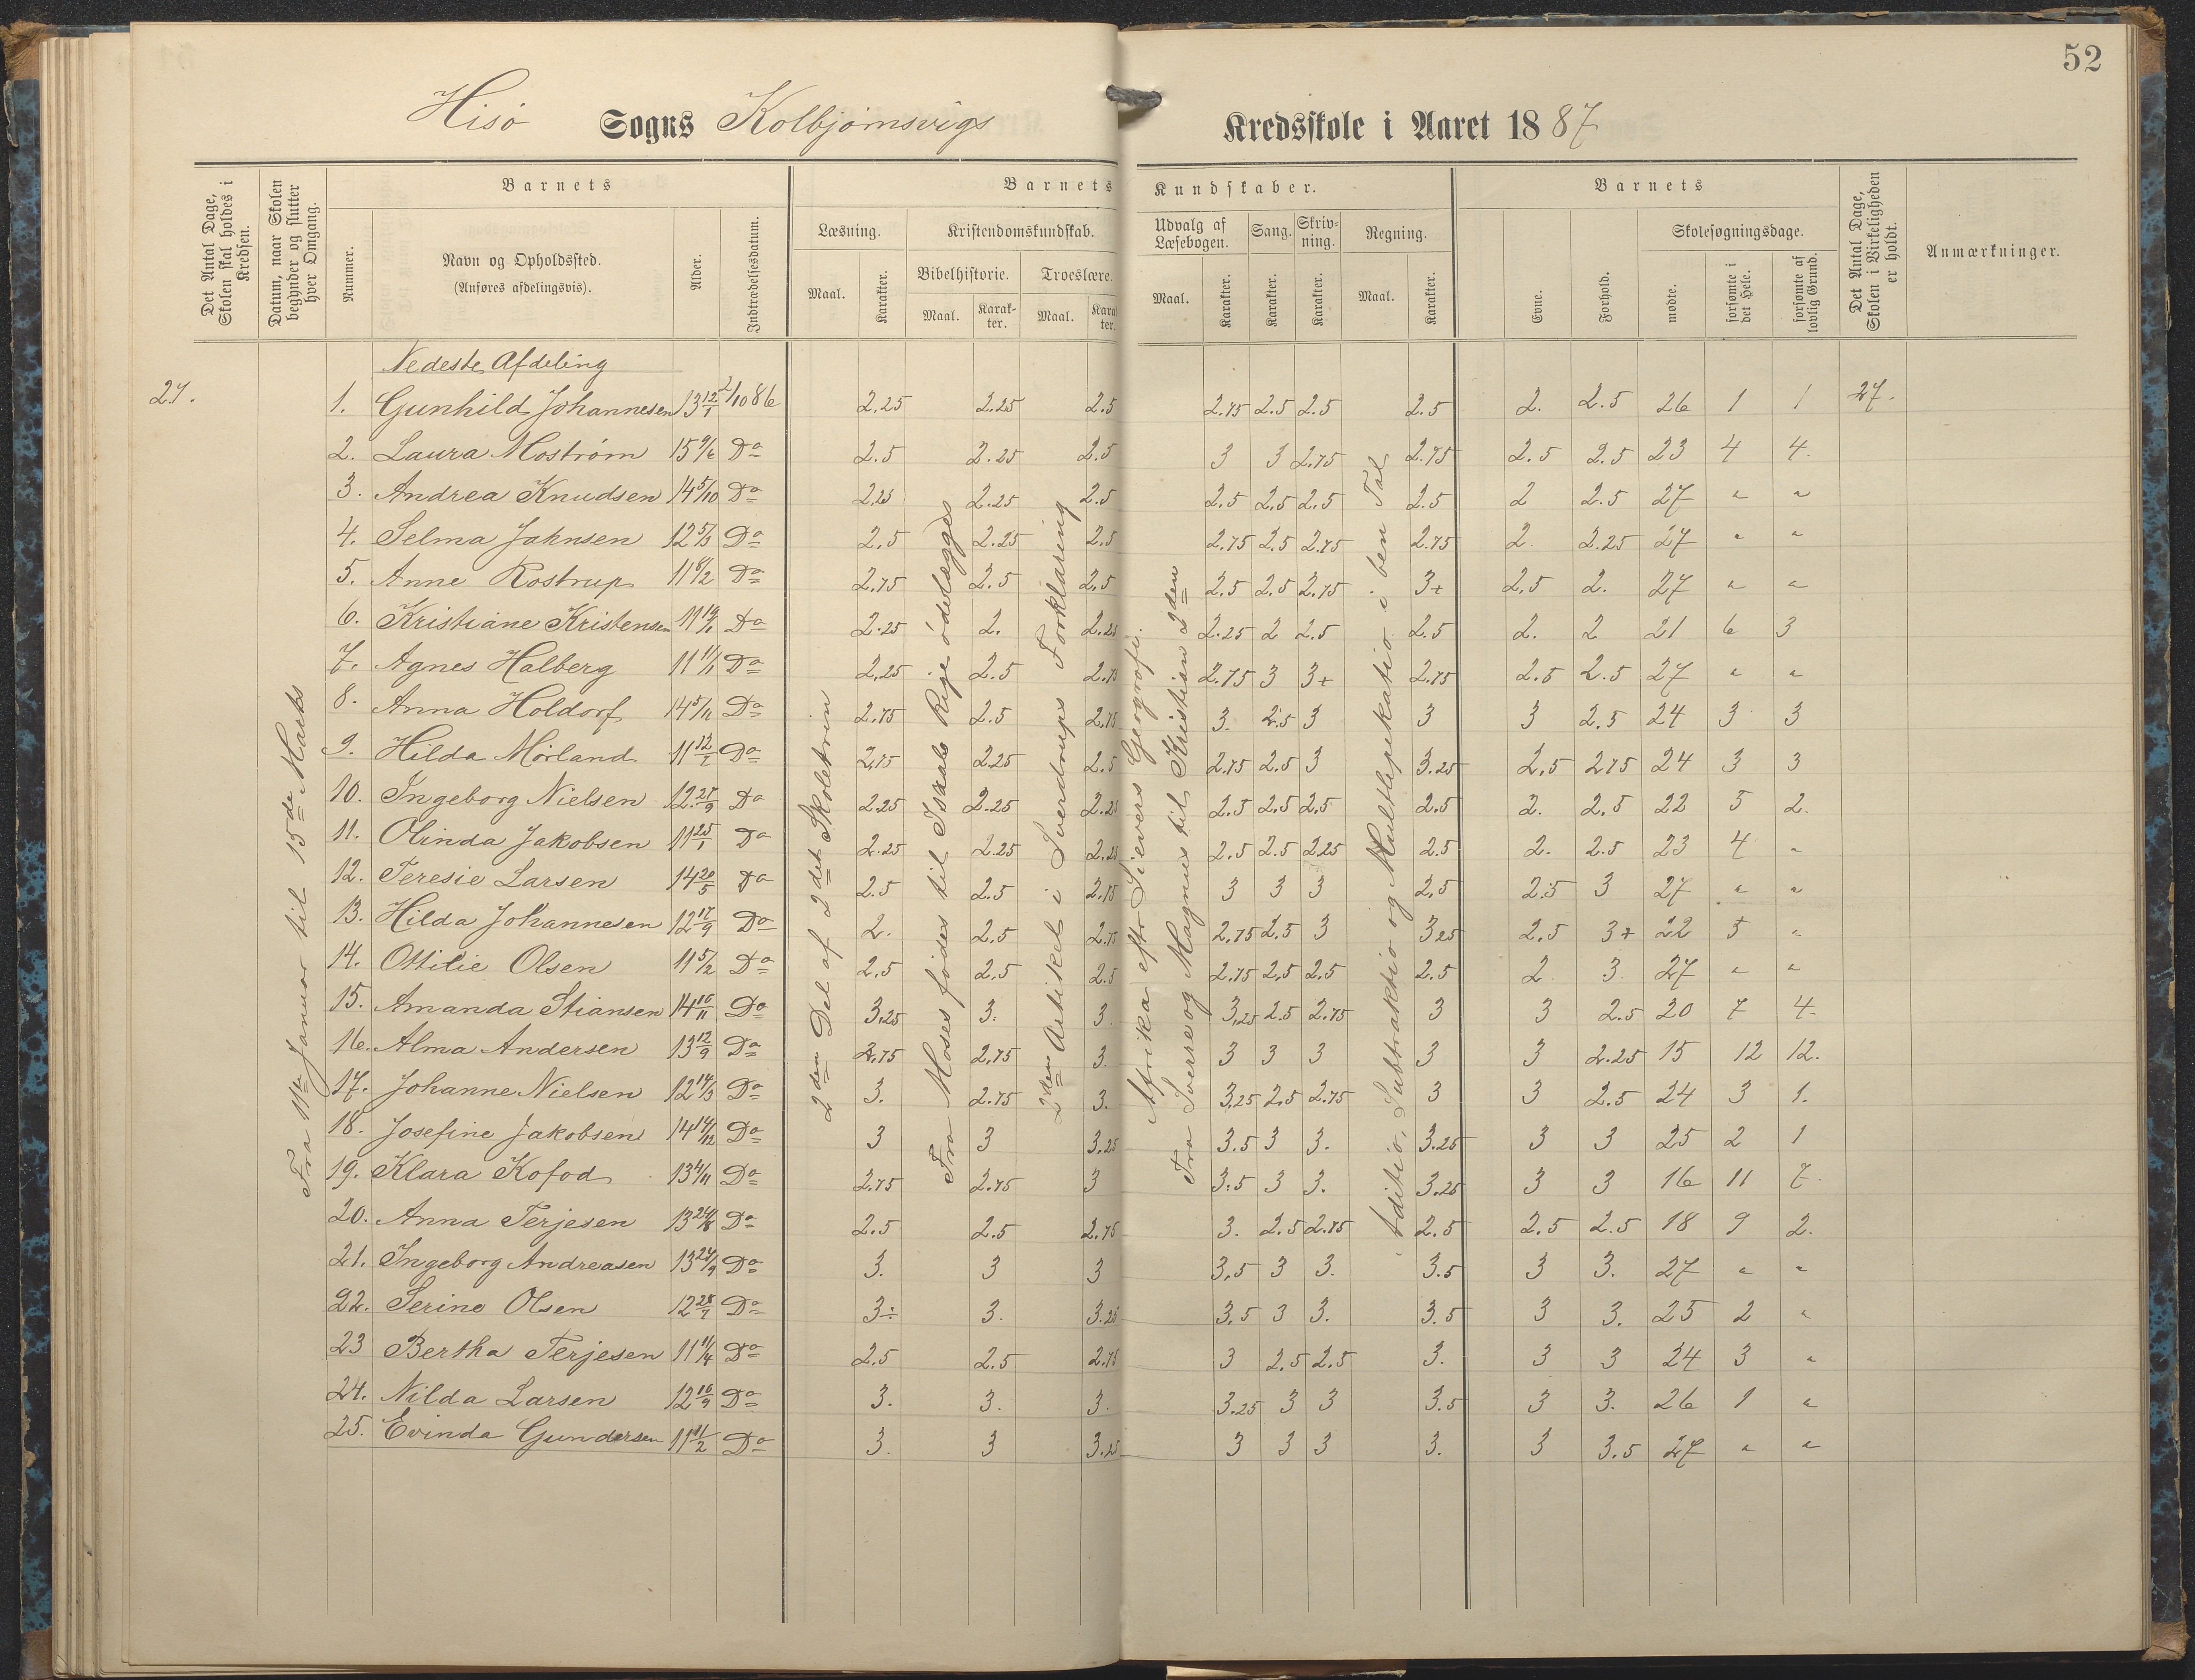 52
Hisø Sogns Kolbjørnsvigs Kredsskole i Aaret 1887
Det Antal Dage, Skolen skal holdes i Kredsen.
Datum, naar Skolen begynder og slutter hver Omgang.
Barnets
Nummer.
Navn og Opholdssted.
(Anføres afdelingsvis).
Alder.
Indtrædelsesdatum.
Barnets Kundskaber.
Læsning.
Maal. Karakter.
Kristendomskundskab.
Bibelhistorie. Troeslære.
Maal. Karakter. Maal. Karakter.
Udvalg af Læsebogen.
Maal. Karakter.
Sang.
Karakter.
Skrivning.
Karakter.
Regning.
Maal. Karakter.
Barnets
Evne.
Forhold.
Skolesøgningsdage.
mødte.
forsømte i det Hele.
forsømte af lovlig Grund.
Det Antal Dage, Skolen i Virkeligheden er holdt.
Anmærkninger.
Nedeste Afdeling
27. 1. Gunhild Johannesen 13 12/1 2/10 86 2.25 2.25 2.5 2.75 2.5 2.5 2.5 2. 2.5 26 1 1 27.
2. Laura Mostrøm 15 9/6 Do 2.5 2.25 2.5 3 3 2.75 2.75 2.5 2.5 23 4 4.
3. Andrea Knudsen 14 5/10 Do 2.25 2.25 2.5 2.5 2.5 2.5 2.5 2 2.5 27 " "
4. Selma Jahnsen 12 5/3 Do 2.5 2.25 2.5 2.75 2.5 2.75 2.75 2. 2.25 27 " "
5. Anne Rostrup 11 8/2 Do 2.75 2.5 2.5 2.5 2.5 2.75 3+ 2.5 2. 27 " "
6. Kristiane Kristensen Do 2.25 2. 2.25 2.25 2 2.5 2.5 2. 2 21 6 3
7. Agnes Halberg 11 11/1 Do 2.25 2.5 2.75 2.75 3 3+ 2.75 2.5 2.5 27 " "
8. Anna Holdorf 14 5/11 Do 2.75 2.5 2.75 3. 2.5 3 3 3 2.5 24 3 3
9. Hilda Mørland 11 12/1 Do 2.75 2.25 2.5 2.75 2.5 3 3.25 2.5 2.75 24 3 3
10. Ingeborg Nielsen 12 27/9 Do 2.25 2.25 2.25 2.5 2.5 2.5 2.5 2. 2.5 22 5 2.
11. Olinda Jakobsen 11 25/1 Do 2.25 2.25 2.25 2.5 2.5 2.25 2.5 2. 2.5 23 4 "
12. Teresie Larsen 14 20/5 Do 2.5 2.5 2.75 3 3 3 2.5 2.5 3 27 " "
13. Hilda Johannesen 12 17/9 Do 2. 2.5 2.75 2.75 2.5 3 3.25 2.5 3+ 22 5 "
14. Ottilie Olsen 11 5/2 Do 2.5 2.5 2.5 2.75 2.5 2.5 2.5 2 3. 27 " "
15. Amanda Stiansen 14 16/11 Do 3.25 3. 3. 3.25 2.5 2.75 3 3 2.5 20 7 4.
16. Alma Andersen 13 12/9 Do 2.75 2.75 3. 3 3 3 3 3 2.25 15 12 12.
17. Johanne Nielsen 12 14/3 Do 3. 2.75 3. 3.25 2.5 2.75 3 3 2.5 24 3 1.
18. Josefine Jakobsen 14 14/12 Do 3 3 3.25 3.5 3 3. 3.25 3 3 25 2 1
19. Klara Kofod 13 4/11 Do 2.75 2.75 3 3.5 3 3. 3.25 3 3 16 11 7.
20. Anna Terjesen 13 24/8 Do 2.5 2.5 2.75 3. 2.5 2.75 2.5 2.5 2.5 18 9 2.
21. Ingeborg Andreasen 13 24/9 Do 3. 3 3 3.5 3 3. 3.5 3 3. 27 " "
22. Serine Olsen 12 28/7 Do 3÷ 3. 3.25 3.5 3 3. 3.5 3 3. 25 2 "
23 Bertha Terjesen 11 11/4 Do 2.5 2.5 2.75 3 2.5 2.5 3. 3 3 24 3 "
24. Nilda Larsen 12 16/9 Do 3. 3. 3. 3.25 3 3 3.5 3 3. 26 1 "
25. Evinda Gundersen 11 11/2 Do 3. 3 3.25 3 3 3 3. 3 3.5 27 " "
Fra 11te Januar til 15de Marts
2den Del af 2det Skoletrin
Fra Moses fødes til Israels Rige ødelægges
2den Artikel i Sverdrups Forklaring
Afrika eftr Sievers Geografi.
Fra Sverre og Magnus til Kristian 2den
Aditio, Subtraktio og Multlipekatio i ben Tal